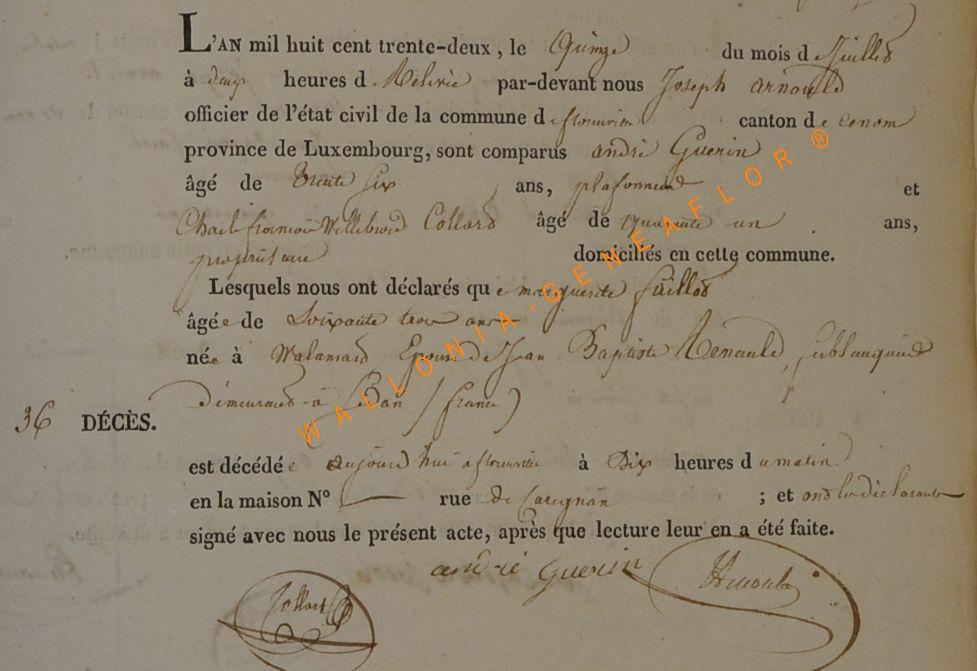 L'AN mil huit cent trente-deux, le Quinze du mois d e Juillet
à deux heures d e Relevée par-devant nous Joseph arnould
officier de l'état civil de la commune d e florenville canton d e
province de Luxembourg, sont comparus andré Guerin
âgé de trente Six ans, plafonneur et
Charle francois Willebrord Collard âgé de quarante un ans,
propriétaire domiciliés en cette commune.
Lesquels nous ont déclarés qu e marguerite
âgée de Soixante trois ans
née à Epouse de Jean Baptiste Renauld, ferblanquier
demeurant à Sedan (france)
36 DÉCÈS.
est décédé e aujourd'hui a florenville à Dix heures d u matin
en la maison N° — rue de Carignan ; et ont les déclarants
signé avec nous le présent acte, après que lecture leur en a été faite.
andré Guerin
Collard
WALLONIA-GENEAFLOR®